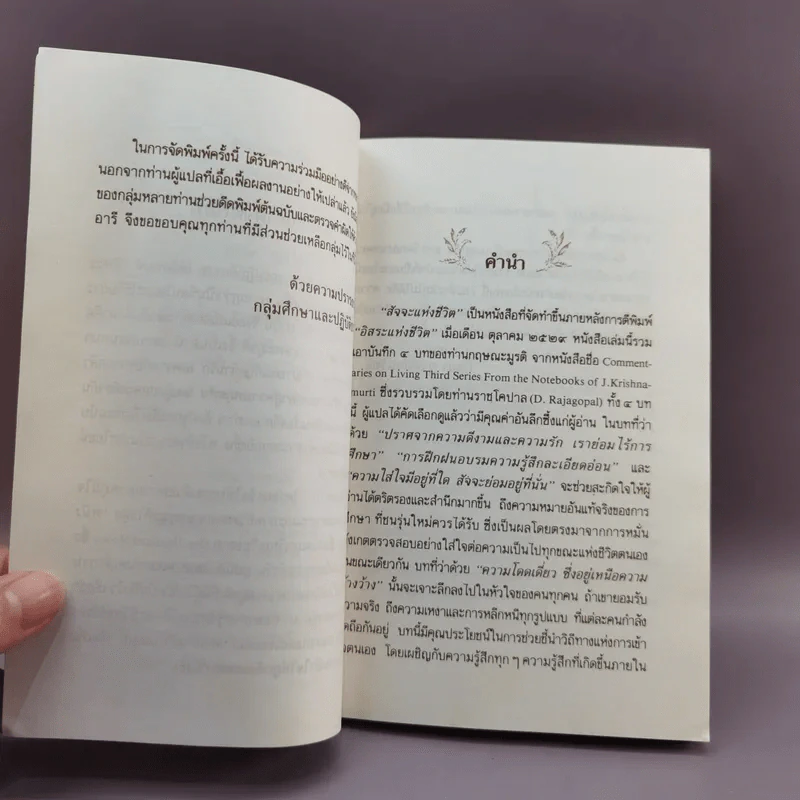 ในการจัดพิมพ์ครั้งนี้ ได้รับความร่วมมืออย่างดีจาก
นอกจากท่านผู้แปลที่เอื้อเฟื้อผลงานอย่างให้เปล่าแล้ว
ของกลุ่มหลายท่านช่วยดีดพิมพ์ต้นฉบับและตรวจคำผิด
อารี จึงขอขอบคุณทุกท่านที่มีส่วนช่วยเหลือกลุ่มไว้
ด้วยความปรารถ
กลุ่มศึกษาและปฏิบัติ
คำนำ
“สัจจะแห่งชีวิต” เป็นหนังสือที่จัดทำขึ้นภายหลังการตีพิมพ์
“อิสระแห่งชีวิต” เมื่อเดือน ตุลาคม ๒๕๒๙ หนังสือเล่มนี้รวม
เอาบันทึก ๔ บทของท่านกฤษณะมูรติ จากหนังสือชื่อ Comment-
aries on Living Third Series From the Notebooks of J.Krishna-
murti ซึ่งรวบรวมโดยท่านราชโคปาล (D. Rajagopal) ทั้ง ๔ บท
นี้ ผู้แปลได้คัดเลือกดูแล้วว่ามีคุณค่าอันลึกซึ้งแก่ผู้อ่าน ในบทที่ว่า
ด้วย “ปราศจากความดีงามและความรัก เราย่อมไร้การ
ศึกษา” “การฝึกฝนอบรมความรู้สึกละเอียดอ่อน” และ
“ความใส่ใจมีอยู่ที่ใด สัจจะย่อมอยู่ที่นั่น” จะช่วยสะกิดใจให้ผู้
อ่านได้ตริตรองและสำนึกมากขึ้น ถึงความหมายอันแท้จริงของการ
ศึกษา ที่ชนรุ่นใหม่ควรได้รับ ซึ่งเป็นผลโดยตรงมาจากการหมั่น
สังเกตตรวจสอบอย่างใส่ใจต่อความเป็นไปทุกขณะแห่งชีวิตตนเอง
ในขณะเดียวกัน บทที่ว่าด้วย “ความโดดเดี่ยว ซึ่งอยู่เหนือความ
อ้างว้าง” นั้นจะเจาะลึกลงไปในหัวใจของคนทุกคน ถ้าเขายอมรับ
ความจริง ถึงความเหงาและการหลีกหนีทุกรูปแบบ ที่แต่ละคนกำลัง
ยึดถือกันอยู่ บทนี้มีคุณประโยชน์ในการช่วยชี้นำวิถีทางแห่งการเข้า
ตนเอง โดยเผชิญกับความรู้สึกทุก ๆ ความรู้สึกที่เกิดขึ้นภายใน